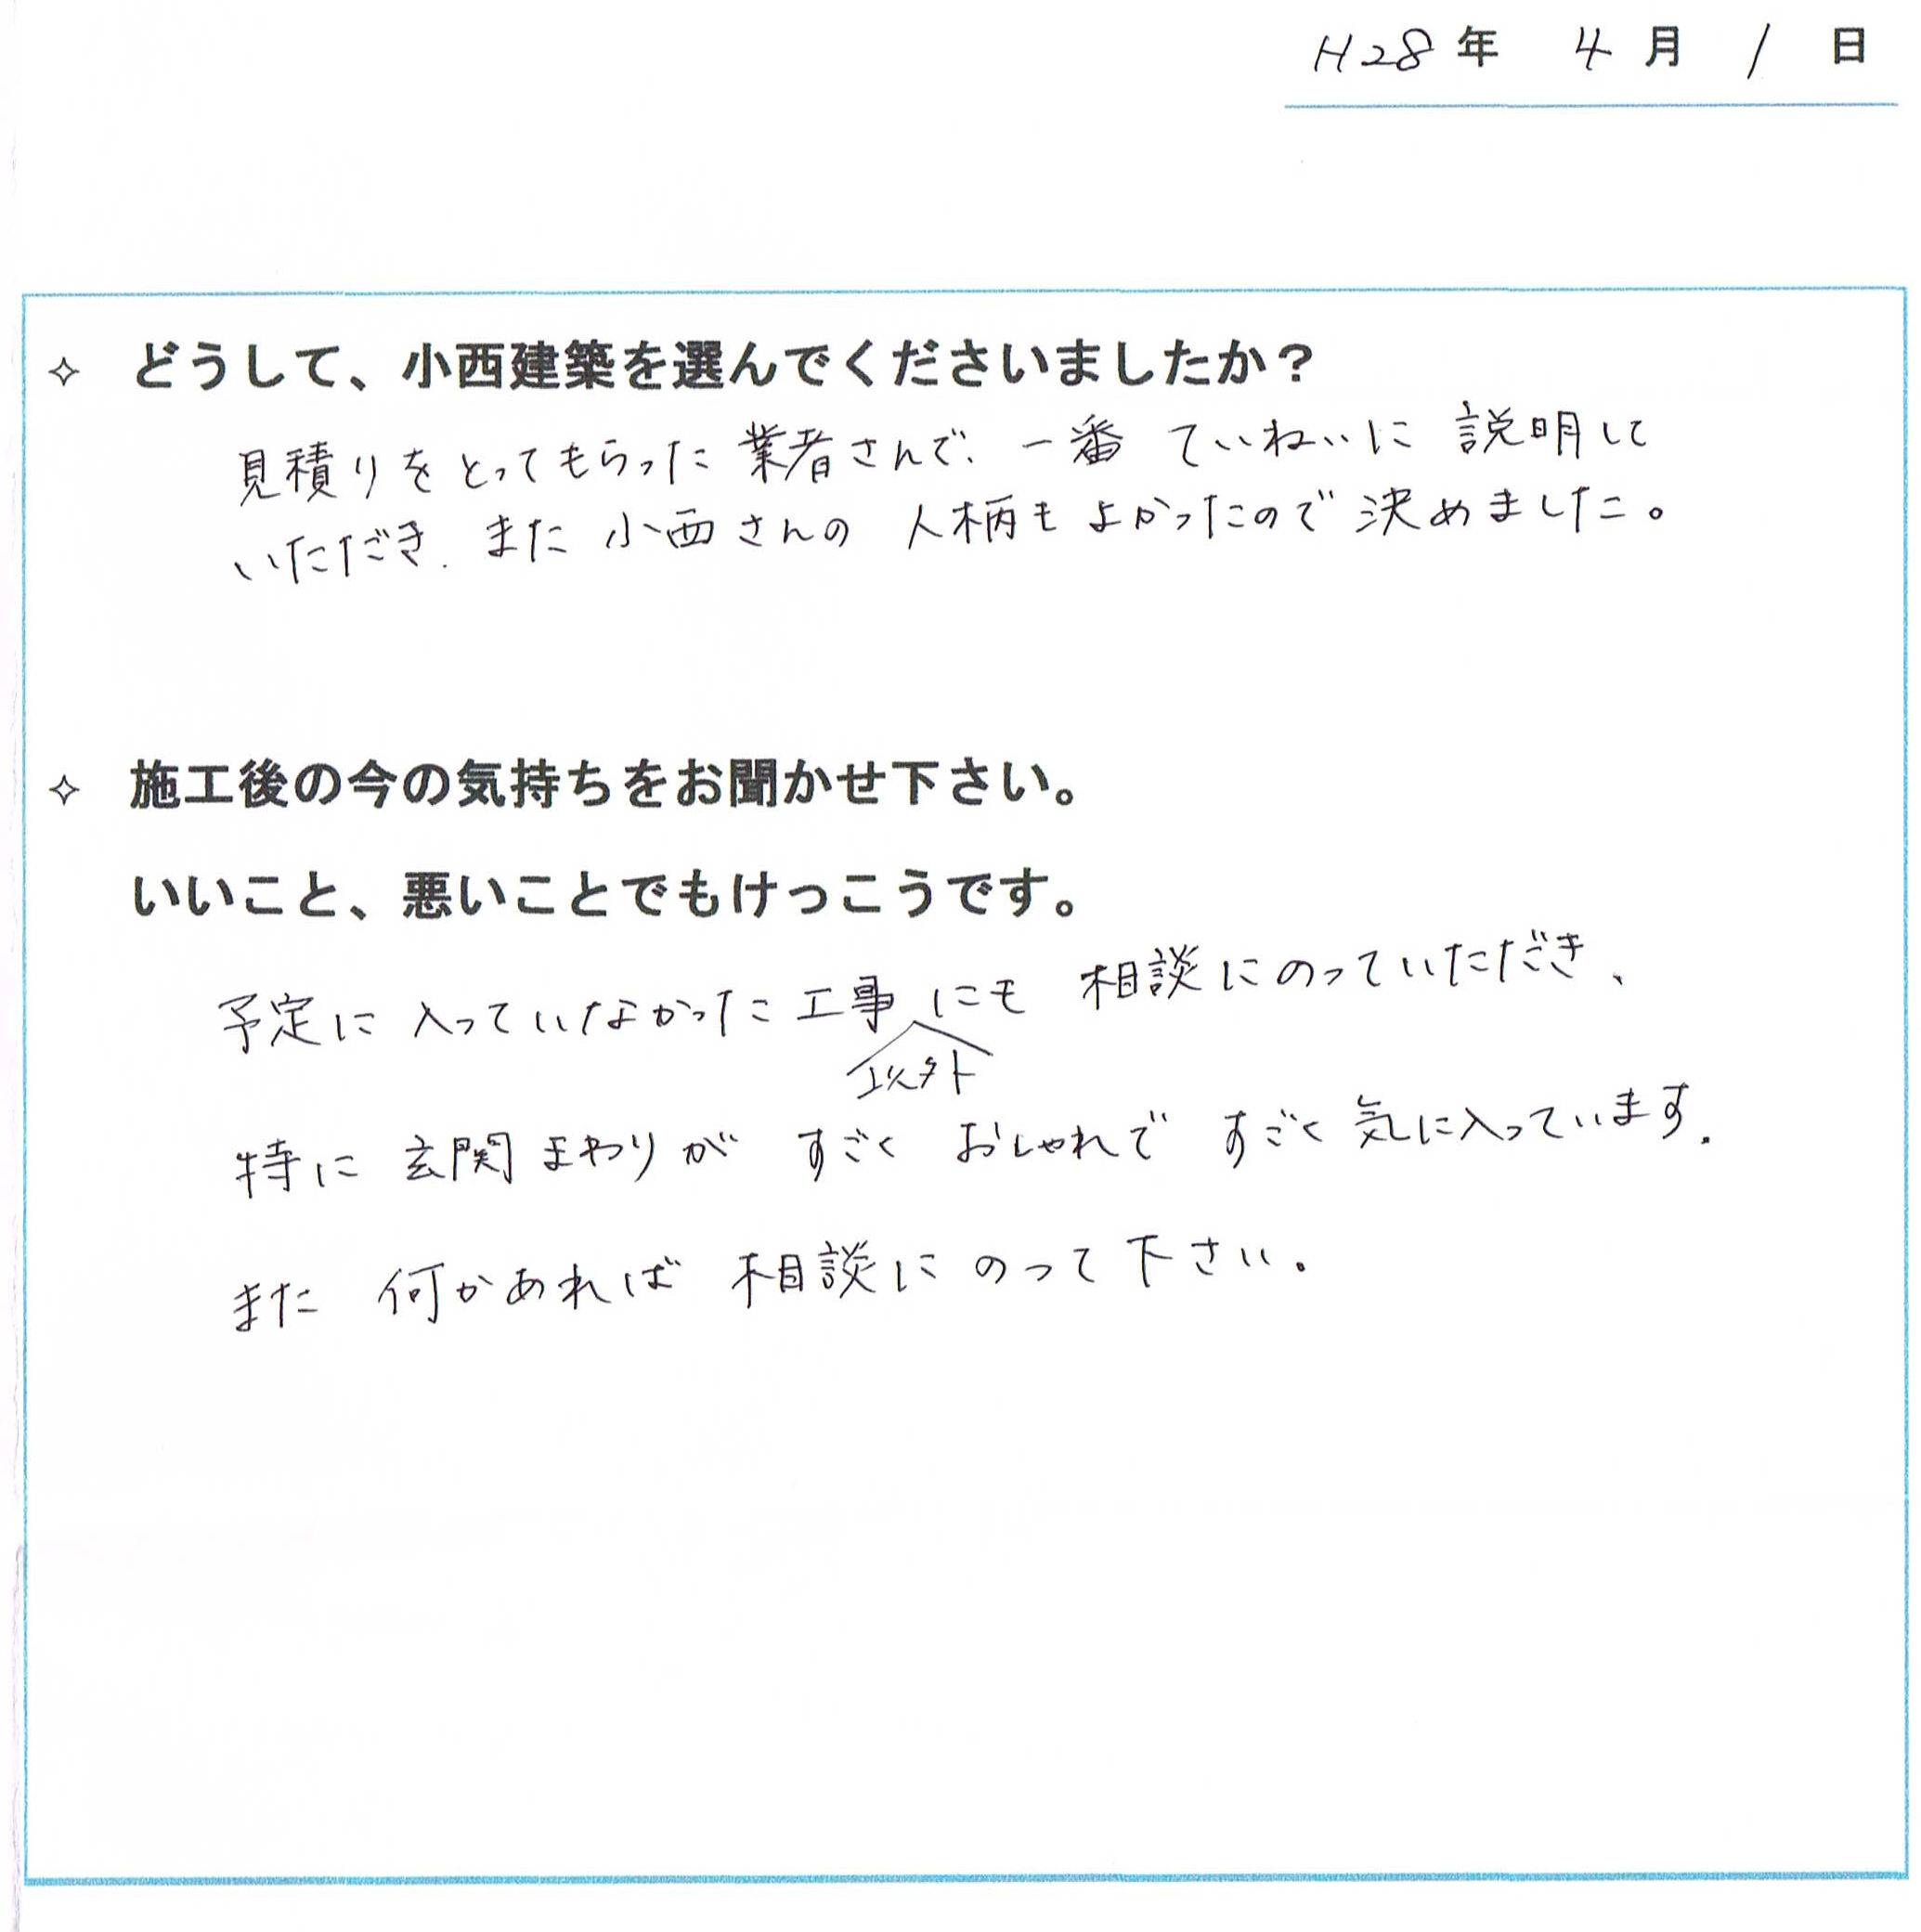 H28年 4月 1日
✧ どうして、小西建築を選んでくださいましたか？
見積りをとってもらった業者さんで、一番 ていねいに 説明して
いただき、また 小西さんの 人柄も よかったので 決めました。
✧ 施工後の今の気持ちをお聞かせ下さい。
いいこと、悪いことでもけっこうです。
予定に 入っていなかった 工事 にも 相談にのっていただき、
以外
特に 玄関まわりが すごく おしゃれで すごく 気に入っています.
また 何かあれば 相談に のって 下さい.